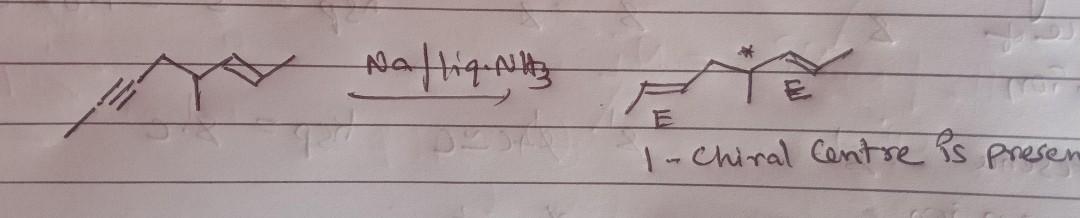 Na/liq.NH3
*
E
E
1 - Chiral Centre is presen